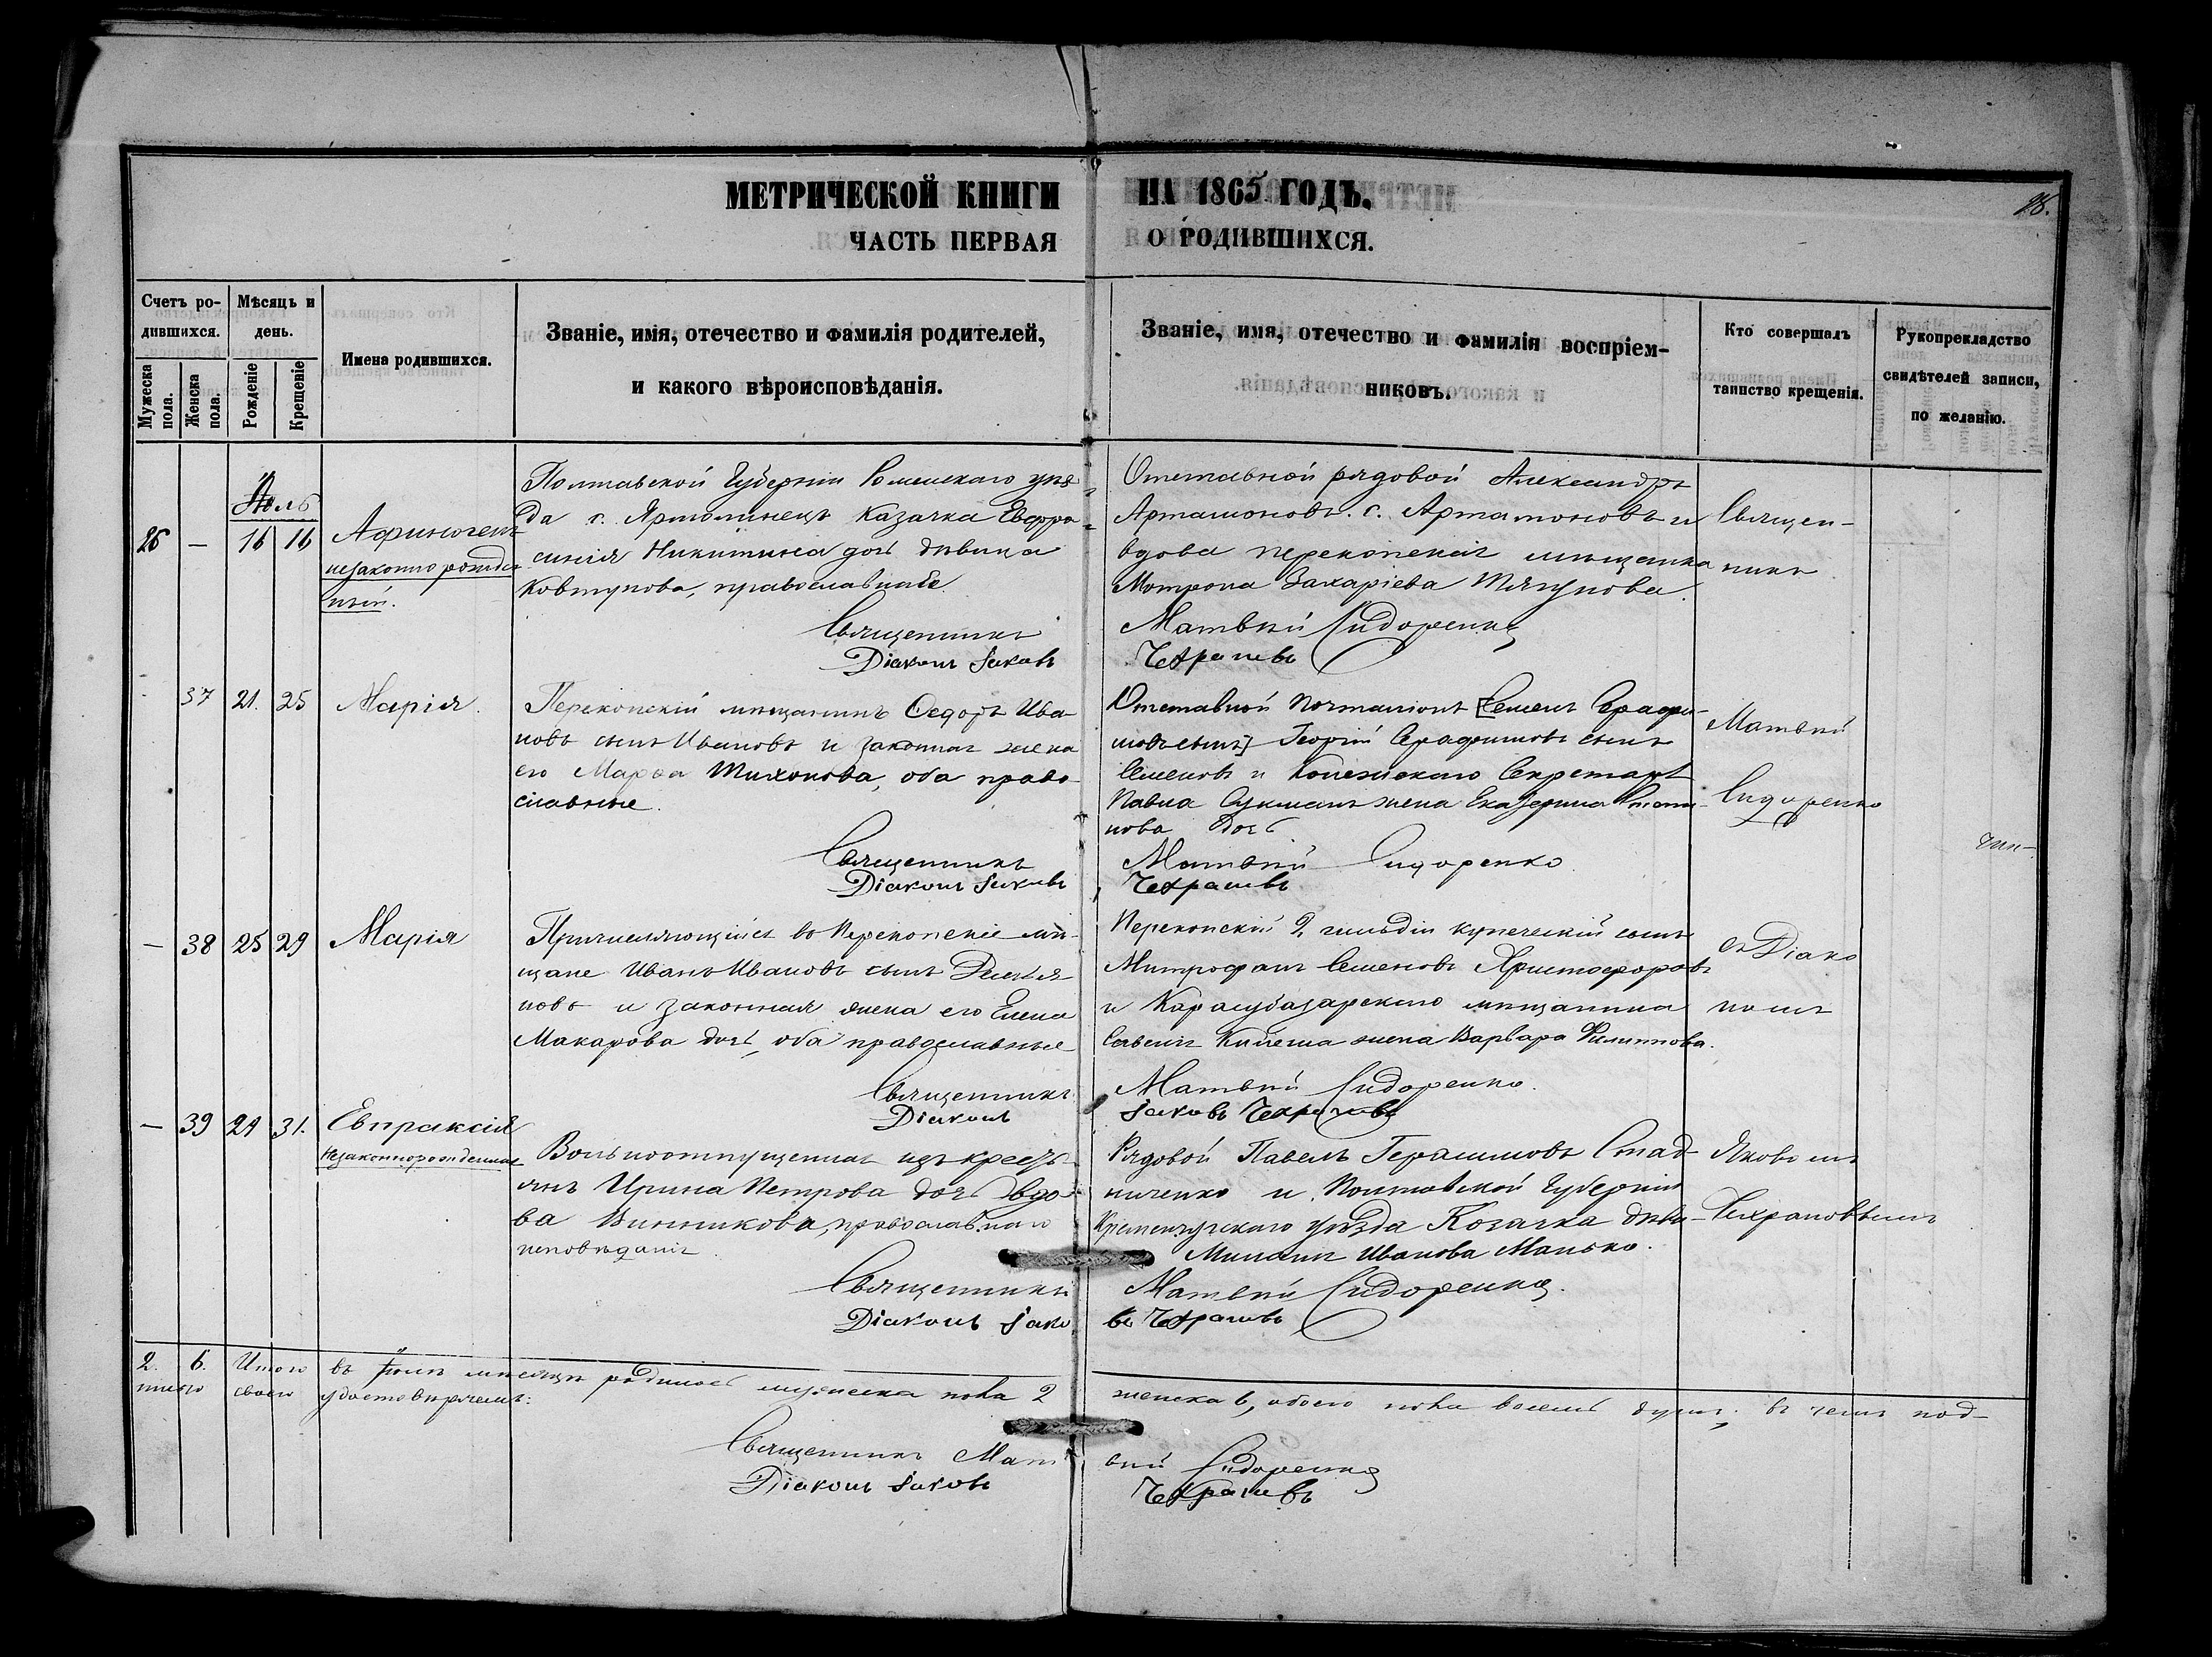 МЕТРИЧЕСКОЙ КНИГИ НА 1865 ГОДЪ.
ЧАСТЬ ПЕРВАЯ О РОДИВШИХСЯ.
Счетъ родившихся.
Мужеска пола.
Женска пола.
Мѣсяцъ и день.
Рожденіе
Крещеніе
Имена родившихся.
Званіе, имя, отечество и фамилія родителей,
и какого вѣроисповѣданія.
Званіе, имя, отечество и фамилія воспріем-
никовъ.
Кто совершалъ
таинство крещенія.
Рукоприкладство
свидѣтелей записи,
по желанію.
Іюль
26 — 16 16
незаконнорожден
ный.
Полтавской Губерніи Роменскаго уѣз
да с. Ярмолинецъ Казачка Евфро
синія Никитина дочь дѣвица
Ковтунова, православная
Священникъ
Діаконъ Іаковъ
Отставной рядовой Александръ
Артамоновъ с. Артамоновъ и
вдова перекопская мѣщанка
Матрона Захаріева
Матвѣй Сидоренко
Чехрановъ
Священ-
никъ
37 21. 25 Марія.
Перекопскій мѣщанинъ Ѳедоръ Ива
новъ сынъ Ивановъ и законная жена
его Марѳа Тихонова, оба право-
славные.
Священникъ
Діаконъ Іаковъ
Отставной Семенъ Серафи-
мовъ сынъ] Георгій Серафимовъ сынъ
Семеновъ и Секретаря
Павла жена Екатерина
нова дочь
Матвѣй Сидоренко
Чехрановъ
Матвѣй
Сидоренко
— 38 25 29 Марія
Причисляющійся въ Перекопскіе мѣ
щане Иванъ Ивановъ сынъ
новъ и законная жена его Елена
Макарова дочь, оба православные
Священникъ
Діаконъ
Перекопскій 2 гильдіи купеческій сынъ
Митрофанъ Семеновъ Христофоровъ
и Карасубазарскаго мѣщанина
жена Варвара Филиппова.
Матвѣй Сидоренко.
Іаковъ Чехрановъ
съ Діако
номъ
— 39 24 31. Евпраксія
Незаконнорожденная
Вольноотпущенная изъ кресть
янъ Ирина Петрова дочь вдо-
ва Винникова, православнаго
исповѣданія.
Священникъ
Діаконъ Іако
Рядовой Павелъ Герасимовъ Стад-
ниченко и Полтавской Губерніи
Кременчугскаго уѣзда Козачка дѣви-
Иванова Манько.
Матвѣй Сидоренко.
въ Чехрановъ
Яковомъ
Чехрановымъ
2. 6. Итого въ Іюлѣ мѣсяцѣ родилось мужеска пола 2 женска 6, обоего пола восемь душъ; въ чемъ под-
писью своею удостовѣряемъ:
Священникъ Мат вѣй Сидоренко
Діаконъ Іаковъ Чехрановъ